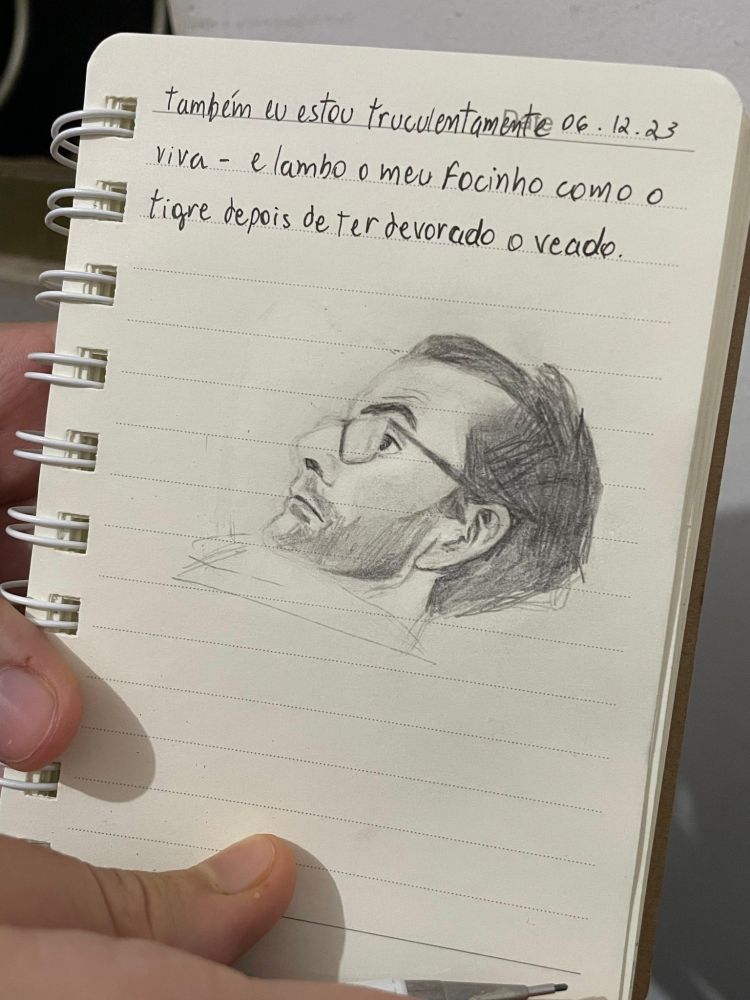 também eu estou truculentamente 06.12.23
viva - e lambo o meu focinho como o
tigre depois de ter devorado o veado.